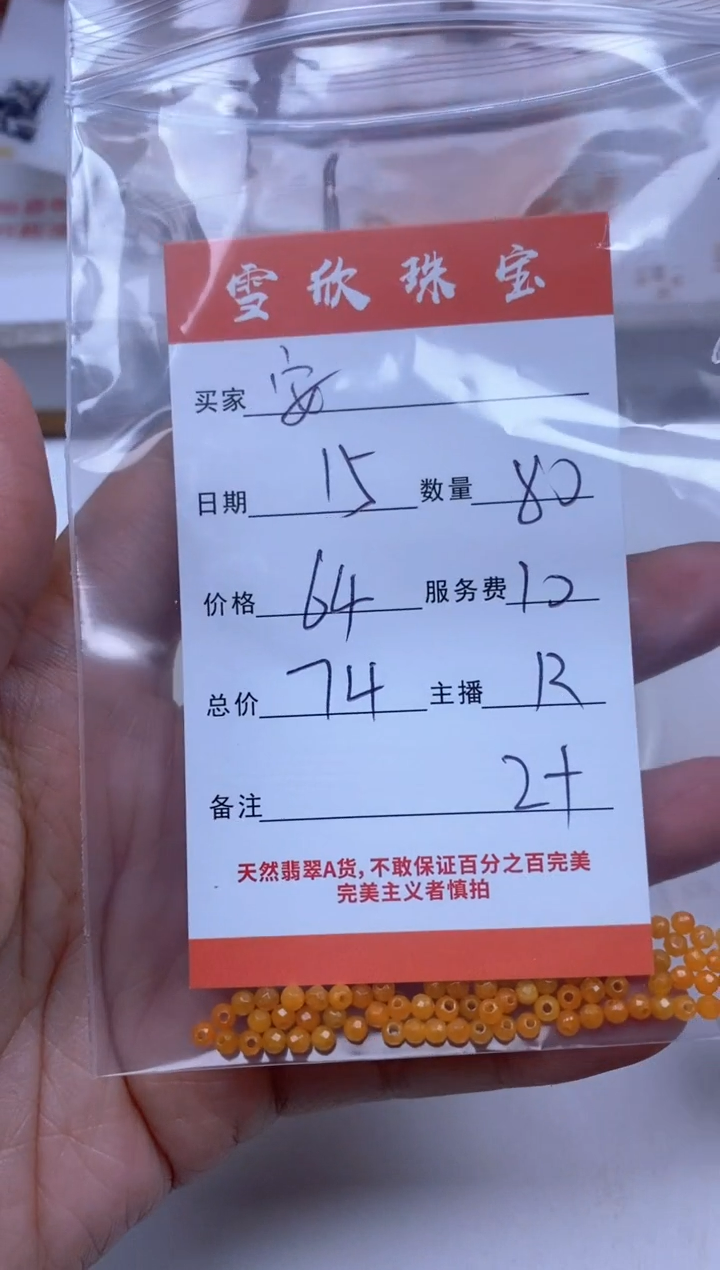 雪欣珠宝
买家 安
日期 15 数量 80
价格 64 服务费 10
总价 74 主播 R
备注 2十
天然翡翠A货,不敢保证百分之百完美
完美主义者慎拍